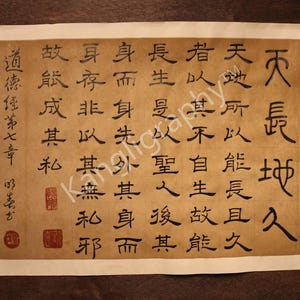 天長地久
天地所以能長且久
者以其不自生故能
長生是以聖人後其
身而身先外其身而
身存非以其無私邪
故能成其私
道德經第七章
Kangligraphy